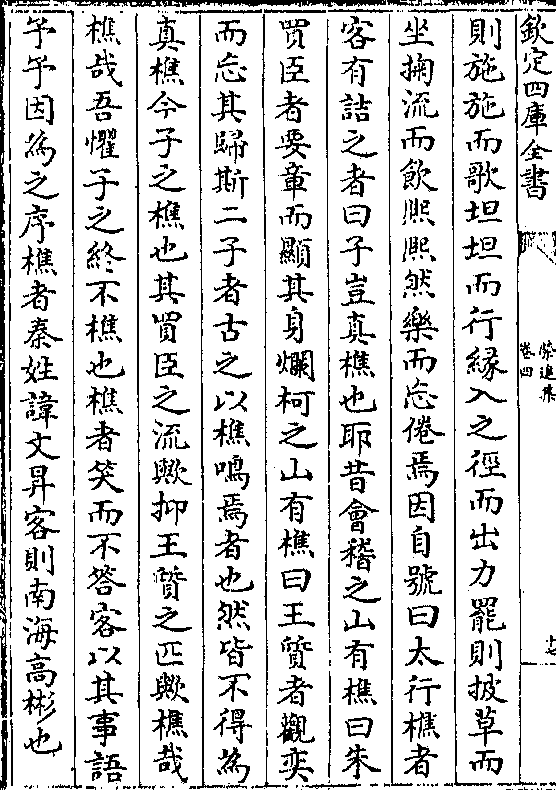 欽定四庫全書
卷四
則施施而歌坦坦而行緣入之徑而出力罷則披草而
坐掬流而飲熙熙然樂而忘倦焉因自號曰太行樵者
客有詰之者曰子豈真樵也耶昔會稽之山有樵曰朱
買臣者要章而顯其身爛柯之山有樵曰王質者觀奕
而忘其歸斯二子者古之以樵鳴焉者也然皆不得為
真樵今子之樵也其買臣之流歟抑王質之匹歟樵哉
樵哉吾懼子之終不樵也樵者笑而不答客以其事語
予予因為之序樵者秦姓諱文昇客則南海高彬也